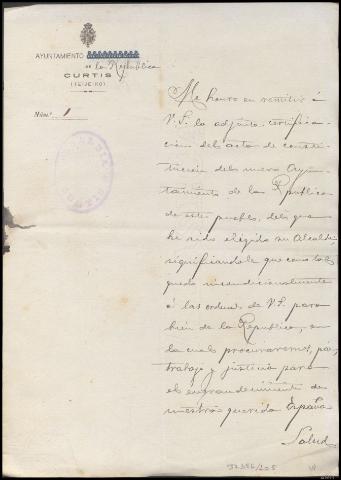 AYUNTAMIENTO
DE la Republica
CURTIS
(TEIJEIRO)
Núm. 1
Me honro en remitir á
V. S. la adjunta certifica-
ción del acta de consti-
tución del nuevo Ayun-
tamiento de la República
de este pueblo, del que
he sido elegido su Alcalde,
significandole que como tal
quedo incondicionalmente
á las ordenes de V. S. para
bien de la Republica, en
la cual procuraremos, paz,
trabajo y justicia para
el engrandecimiento de
nuestra querida España
Salud